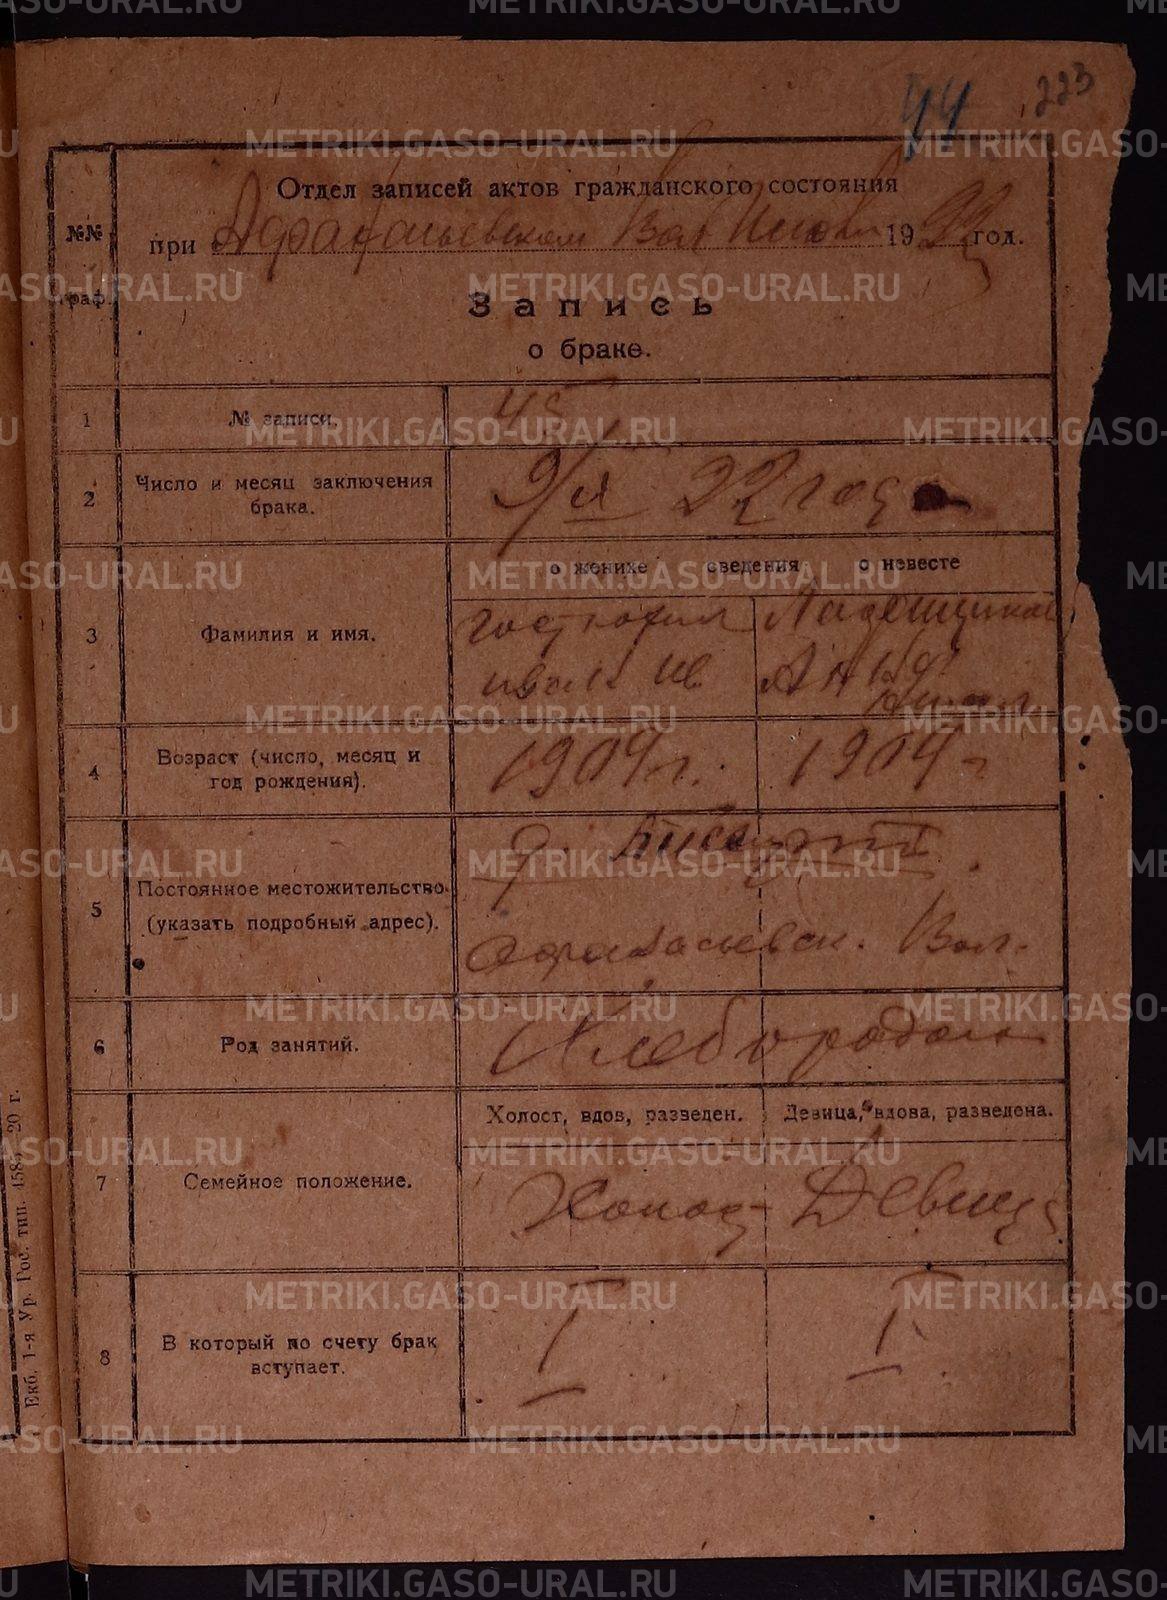 44 223
Отдел записей актов гражданского состояния
при Афанасьевском Вол 1922 год.
№№
граф.
Запись
о браке.
1 № записи. 45
2 Число и месяц заключения
брака. 22 года
о женихе сведения о невесте
3 Фамилия и имя.
Иван Ив Анна
4 Возраст (число, месяц и
год рождения). 1904 г. 1904 г
5 Постоянное местожительство
(указать подробный адрес).
Афанасьевск. Вол.
6 Род занятий. Хлебороды
Холост, вдов, разведен. Девица, вдова, разведена.
7 Семейное положение. Холост Девица
8 В который по счету брак
вступает. I I
Екб. 1-я Ур. Гос. тип. 20 г.
METRIKI.GASO-URAL.RU